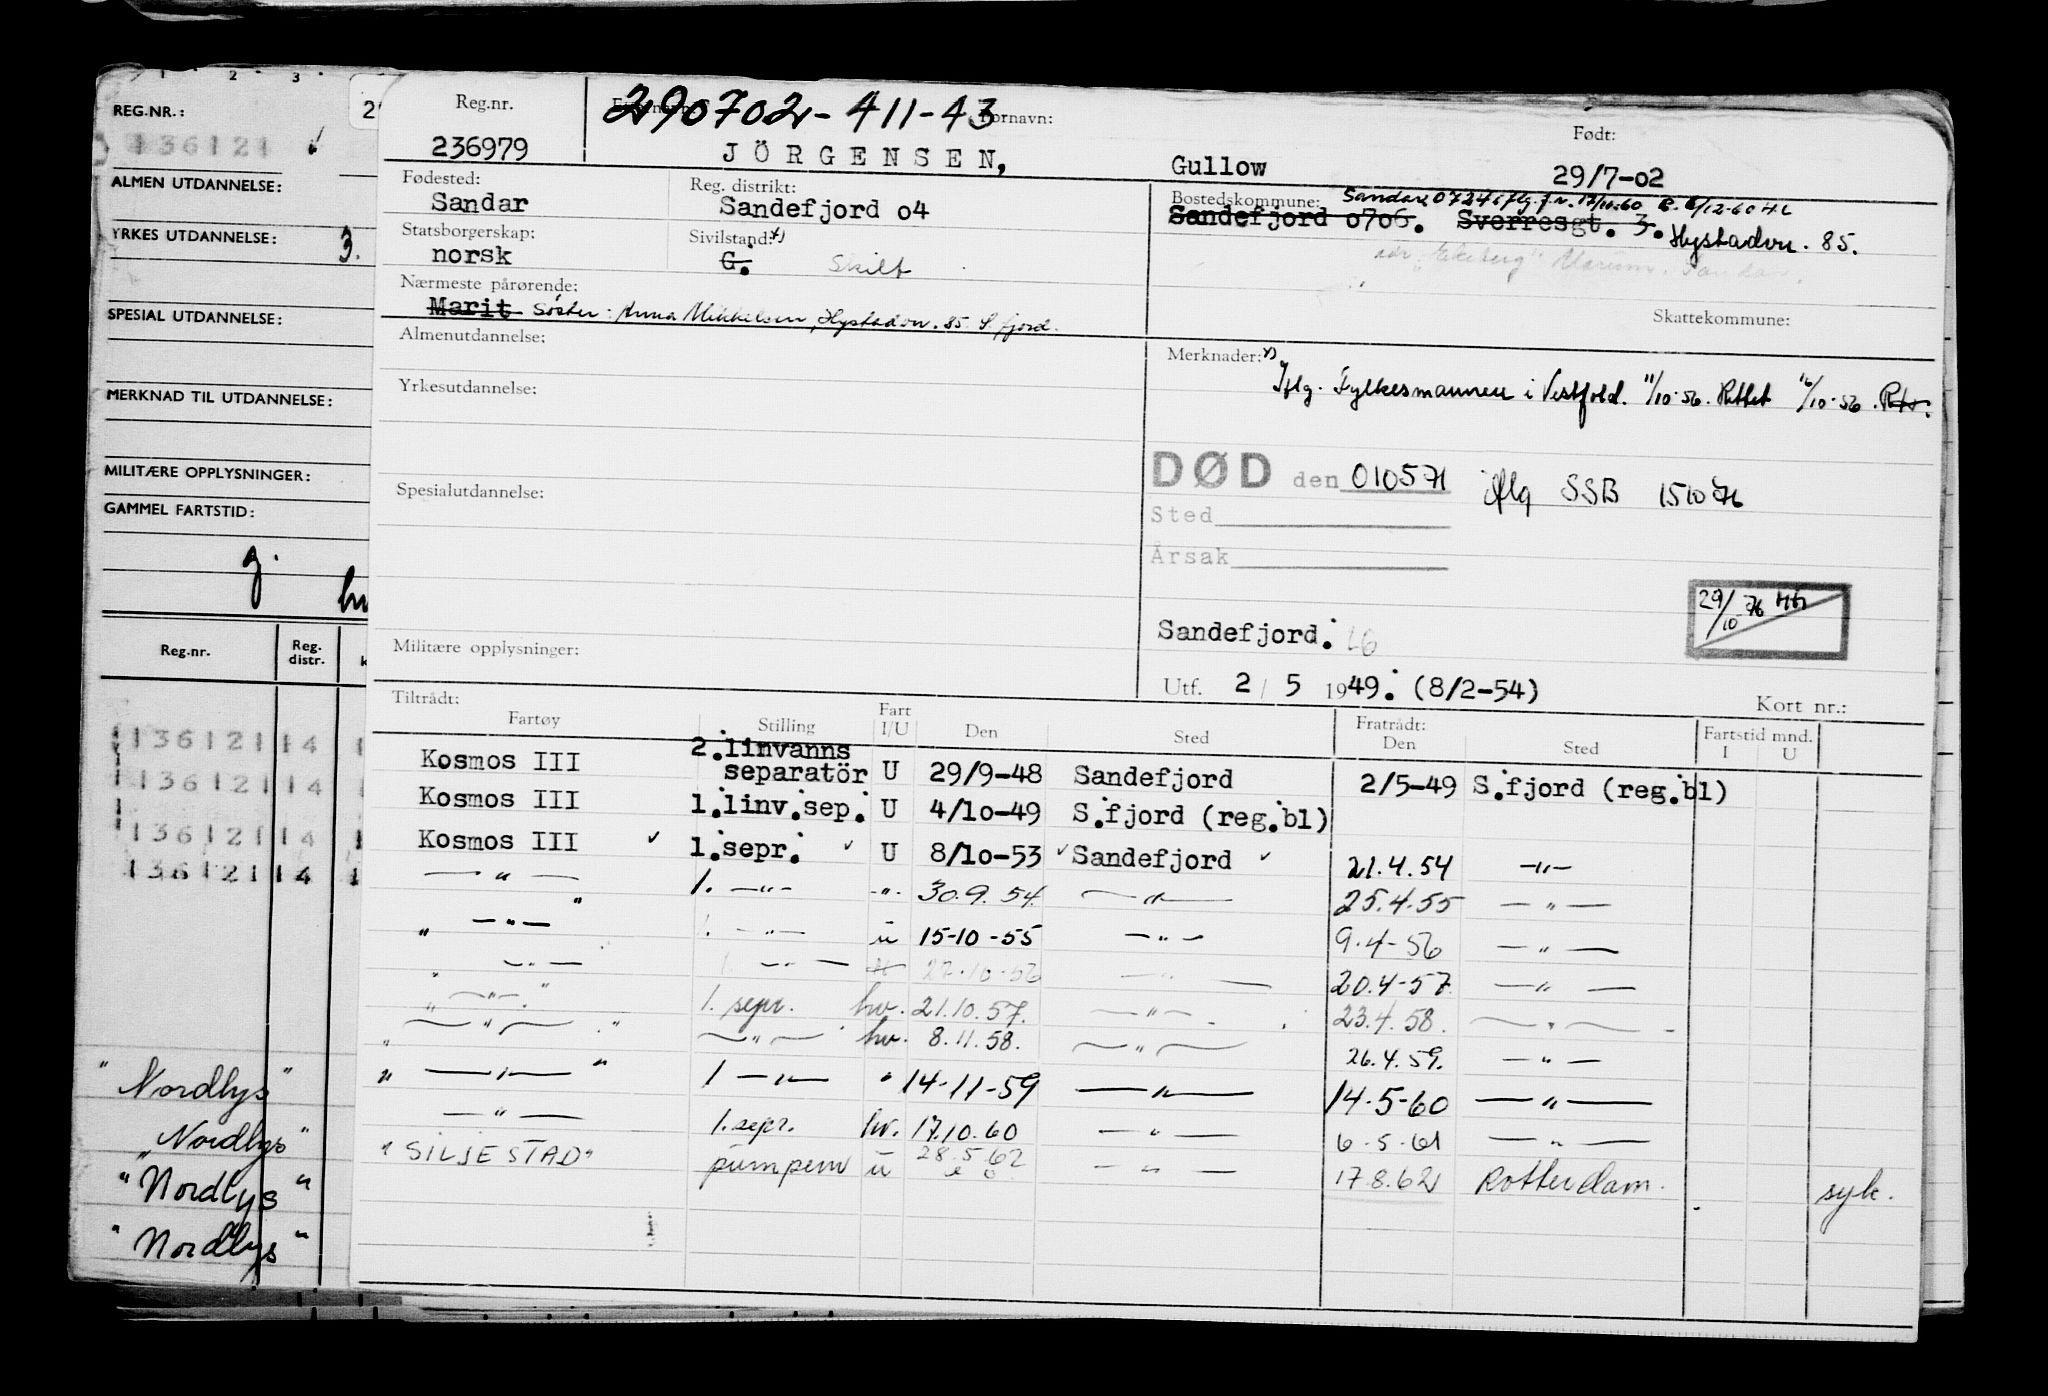 1 2 3
REG.NR.:
136121
ALMEN UTDANNELSE:
YRKES UTDANNELSE: 3.
SPESIAL UTDANNELSE:
MERKNAD TIL UTDANNELSE:
MILITÆRE OPPLYSNINGER:
GAMMEL FARTSTID:
Reg.nr. Reg. distr.
136121 14
136121 14
136121 14
136121 14
"Nordlys"
"Nordlys"
"Nordlys"
"Nordlys"
Reg.nr. 290702-411-43 Fornavn: Født:
236979 JÖRGENSEN, Gullow 29/7-02
Fødested: Reg. distrikt: Bostedskommune: Sandar 0724 iflg. f.nr. 12/11.60
Sandar Sandefjord o4 Sandefjord o7o6. Sverresgt. 3. Hystadvn. 85.
Statsborgerskap: Sivilstand: x)
norsk G. Skilt
Nærmeste pårørende:
Marit Søster: Anna Mikkelsen, Hystadvn. 85 S.fjord.
Skattekommune:
Almenutdannelse: Merknader: x)
Iflg. Fylkesmannen i Vestfold. 11/10-56. Rettet 16/10-56.
Yrkesutdannelse:
DØD den 010571 iflg SSB 151076
Spesialutdannelse:
Sted
Årsak
29/10 76
Sandefjord.
Militære opplysninger:
Utf. 2 / 5 1949. (8/2-54) Kort nr.:
Tiltrådt: Fratrådt: Fartstid mnd.
Fartøy Stilling Fart I/U Den Sted Den Sted I U
Kosmos III 2.linvanns separatör U 29/9-48 Sandefjord 2/5-49 S.fjord (reg.bl)
Kosmos III 1.linv.sep. U 4/10-49 S.fjord (reg.bl)
Kosmos III 1.sepr. U 8/10-53 Sandefjord 21.4.54 —"—
—"— 1. —"— -"- 30.9.54. —"— 25.4.55 —"—
" —"— " 1. —"— u 15-10-55 —"— 9.4-56 —"—
" —"— 1 —"— 27.10.56 —"— 20.4-57 —"—
" —"— " 1. sepr. hv. 21.10.57. —"— 23.4.58. —"—
" —"— " —"— hv. 8.11.58. —"— 26.4.59. —"—
" —"— " 1 —"— " 14-11-59 —"— 14.5-60 —"—
—"— 1. sepr. hv. 17.10.60 —"— 6.5.61 —"—
"SILJESTAD" pumpem u 28.5.62 —"— 17.8.62 Rotterdam. syk.